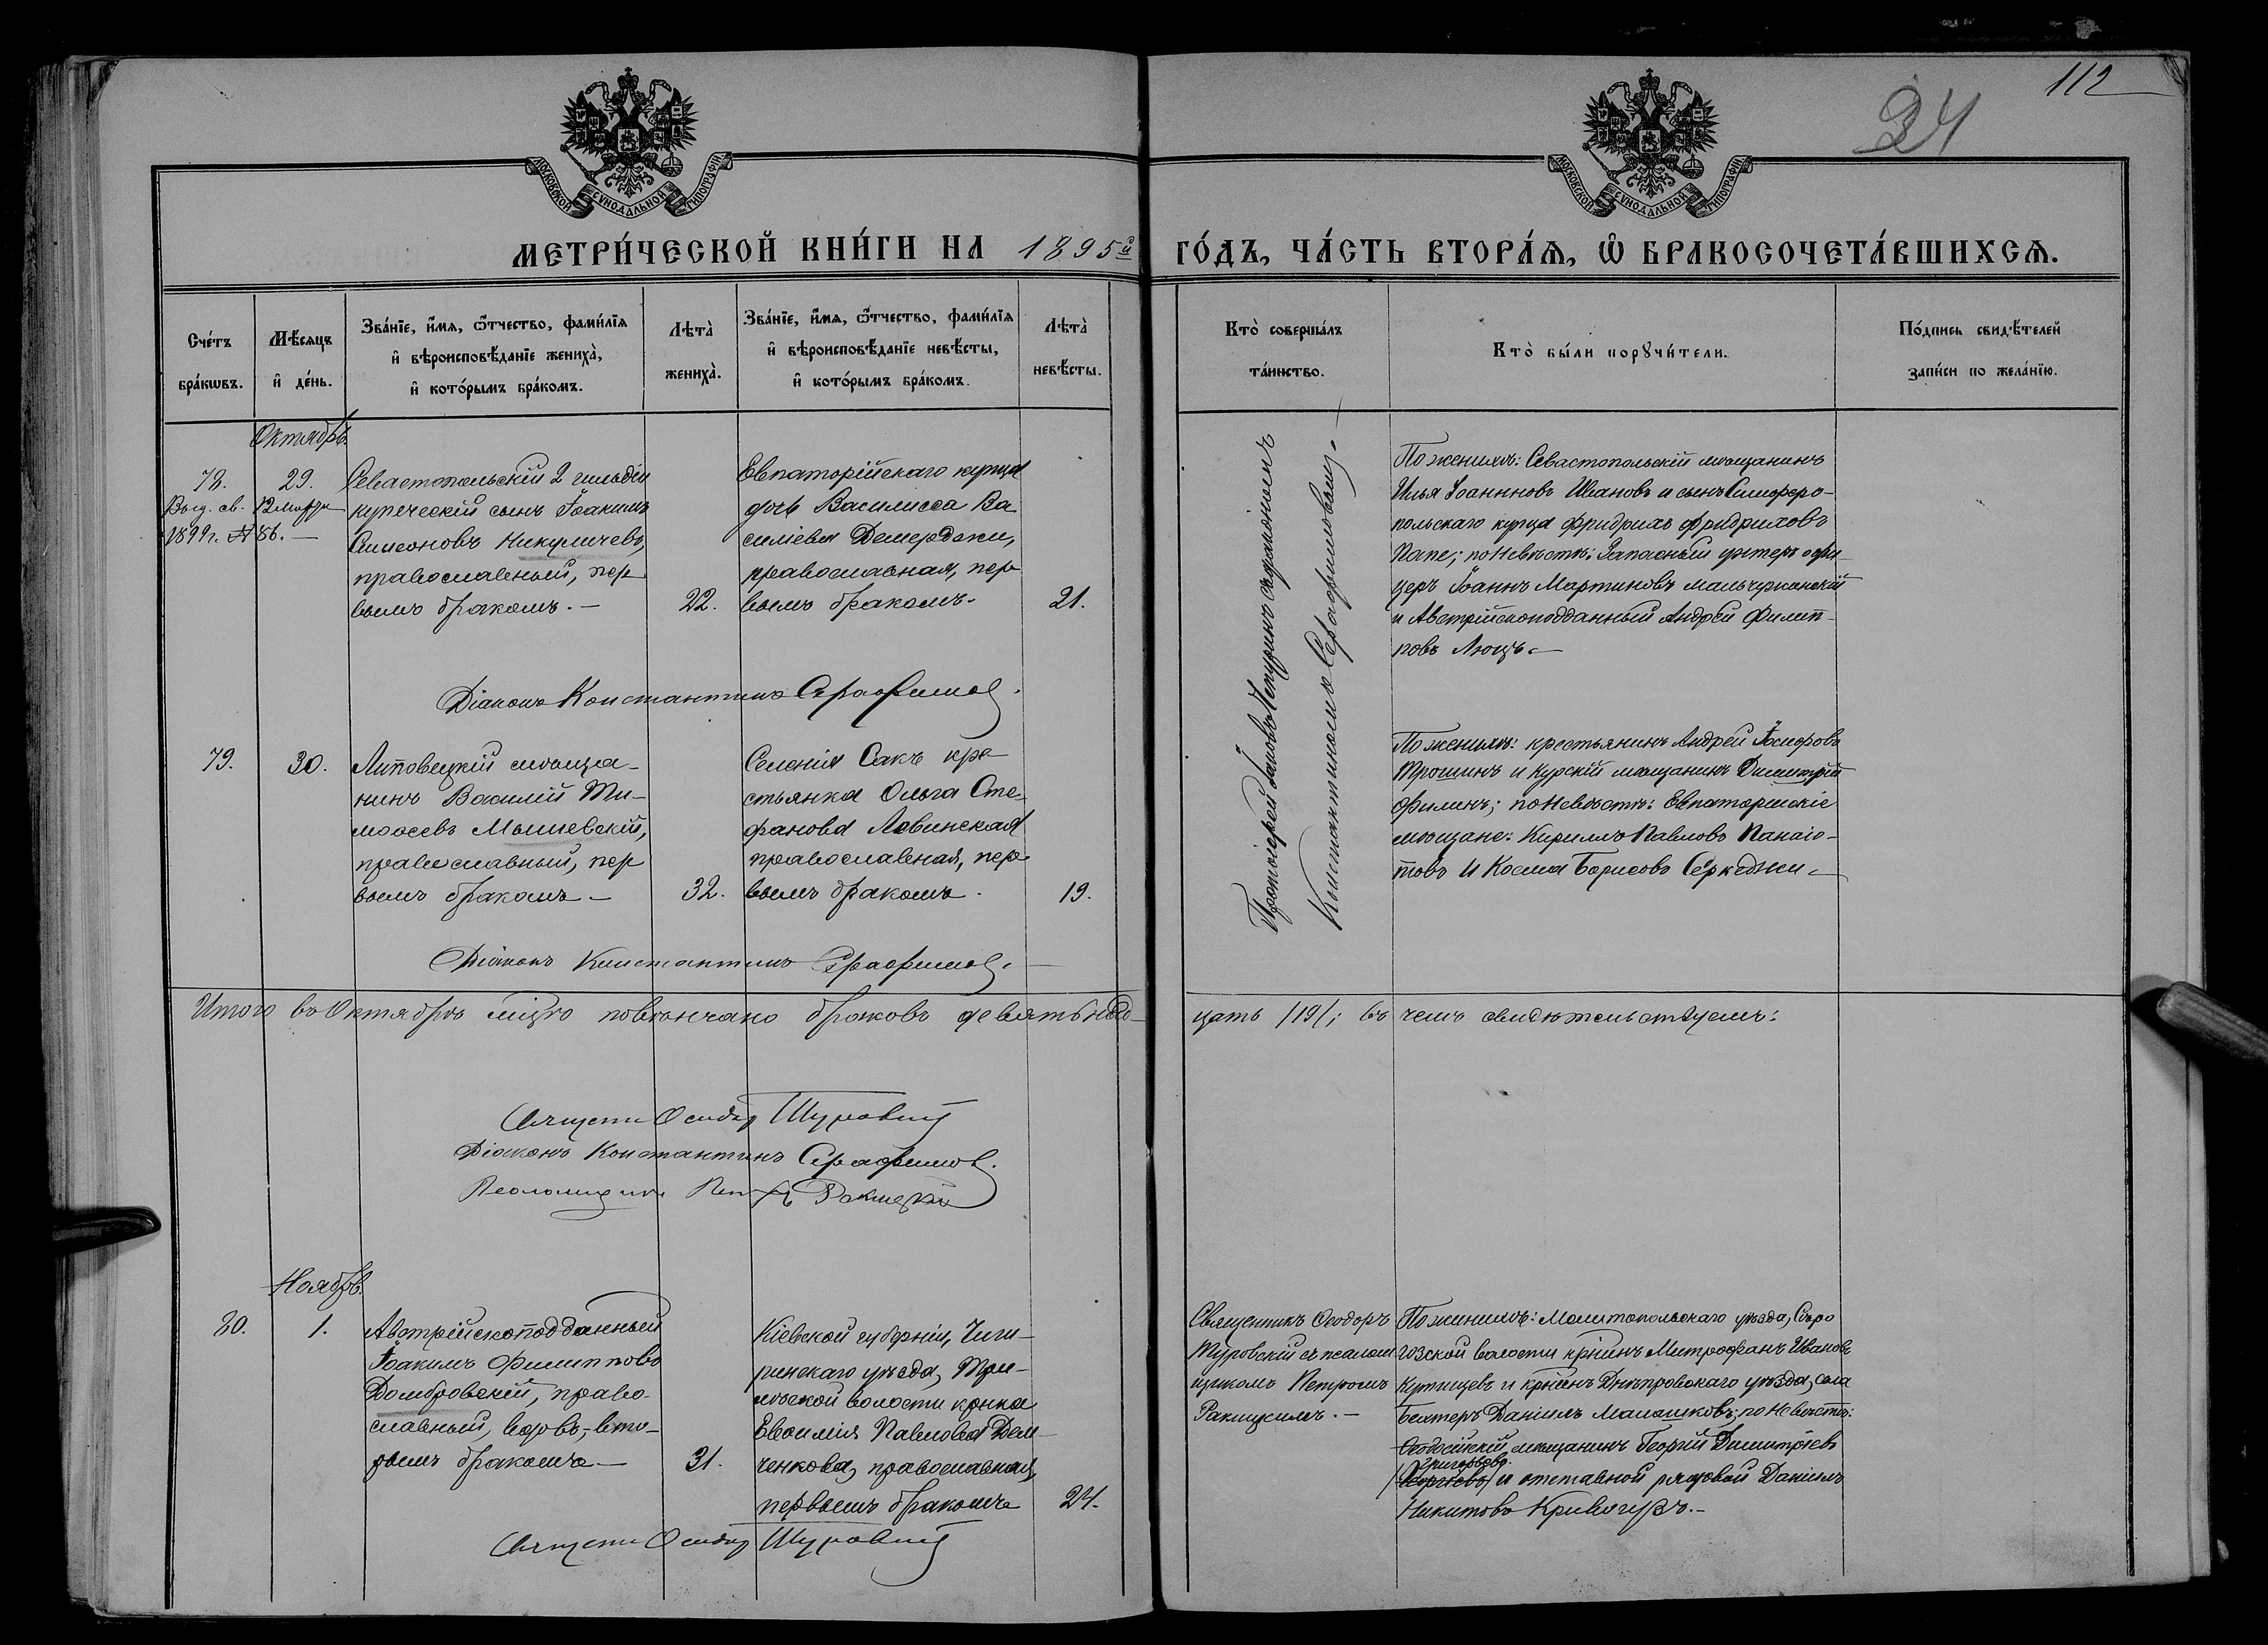 112
34
МОСКОВСКОЙ СѴНОДАЛЬНОЙ ТИПОГРАФІИ
МОСКОВСКОЙ СѴНОДАЛЬНОЙ ТИПОГРАФІИ
МЕТРИ́ЧЕСКОЙ КНИ́ГИ НА 1895й ГО́ДЪ, ЧА́СТЬ ВТОРА́Я, Ѡ БРАКОСОЧЕТА́ВШИХСЯ.
Сче́тъ
бра́кѡвъ.
Мѣ́сяцъ
и҆ де́нь.
Зва́нїе, и҆́мя, ѻ҆́тчество, фами́лїя
и҆ вѣроисповѣ́данїе жениха̀,
и҆ кото́рымъ бра́комъ.
Лѣта̀
жениха̀.
Зва́нїе, и҆́мя, ѻ҆́тчество, фами́лїя
и҆ вѣроисповѣ́данїе невѣ́сты,
и҆ кото́рымъ бра́комъ.
Лѣта̀
невѣ́сты.
Кто̀ соверша́лъ
та́инство.
Кто̀ бы́ли порꙋчи́тели.
По́дпись свидѣ́телей
за́писи по жела́нїю.
Октябрь.
78.
Выд. св.
1899 г. № 86. —
29.
Севастопольскій 2 гильдіи
купеческій сынъ Іоакимъ
Симеоновъ Никуличевъ,
православный, пер
вымъ бракомъ. —
22.
Евпаторійскаго купца
дочь Василисса Ва
силіева Демерджи,
православная, пер
вымъ бракомъ.
21.
Протоіерей Іаковъ Чепуринъ съ діакономъ
Константиномъ Серафимовымъ. —
По женихѣ: Севастопольскій мѣщанинъ
Илья Іоанновъ Ивановъ и сынъ Симферо-
польскаго купца Фридрихъ Фридриховъ
Папе; по невѣстѣ: Запасный унтеръ офи
церъ Іоаннъ Мартиновъ
и Австрійскоподданный Андрей Филип-
повъ Люцъ. —
Діаконъ Константинъ Серафимов.
79.
30.
Липовецкій мѣща-
нинъ Василій Ти-
моѳеевъ Мышевскій,
православный, пер
вымъ бракомъ —
32.
Селенія Сакъ кре-
стьянка Ольга Сте-
фанова Левинская
православная, пер-
вымъ бракомъ.
19.
По женихѣ: крестьянинъ Андрей Іосифовъ
Трошинъ и Курскій мѣщанинъ Димитрій
Филинъ; по невѣстѣ: Евпаторійскіе
мѣщане: Кириллъ Павловъ Панаіо-
товъ и Косма Борисовъ Серкеджи. —
Діаконъ Константинъ Серафимов. —
Итого въ Октябрѣ мцѣ повѣнчано браковъ девятьнад-
цать /19/; въ чемъ свидѣтельствуемъ:
Священ. Ѳеодор Туровскій
Діаконъ Константинъ Серафимов.
Псаломщикъ Петръ Ракицкій
Ноябрь.
80.
1.
Австрійскоподданный
Іоакимъ Филипповъ
Домбровскій, право-
славный, вдовъ, вто-
рымъ бракомъ —
31.
Кіевской губерніи, Чиги-
ринскаго уѣзда, Три-
лѣской волости крнка
Евѳимія Павлова Дем-
ченкова, православная,
первымъ бракомъ
24.
Священникъ Ѳеодоръ
Туровскій съ псалом
щикомъ Петромъ
Ракицкимъ. —
По женихѣ: Мелитопольскаго уѣзда, Сѣро
гозской волости крнинъ Митрофанъ Ивановъ
Купищевъ и крнинъ Днѣпровскаго уѣзда, села
Бехтеръ Даніилъ Малашковъ; по невѣстѣ:
Ѳеодосійскій мѣщанинъ Георгій Димитріевъ
Григорьевъ.
/Георгіевъ/ и отставной рядовой Даніилъ
Никитовъ Кривогузъ. —
Священ. Ѳеодор Туровскій